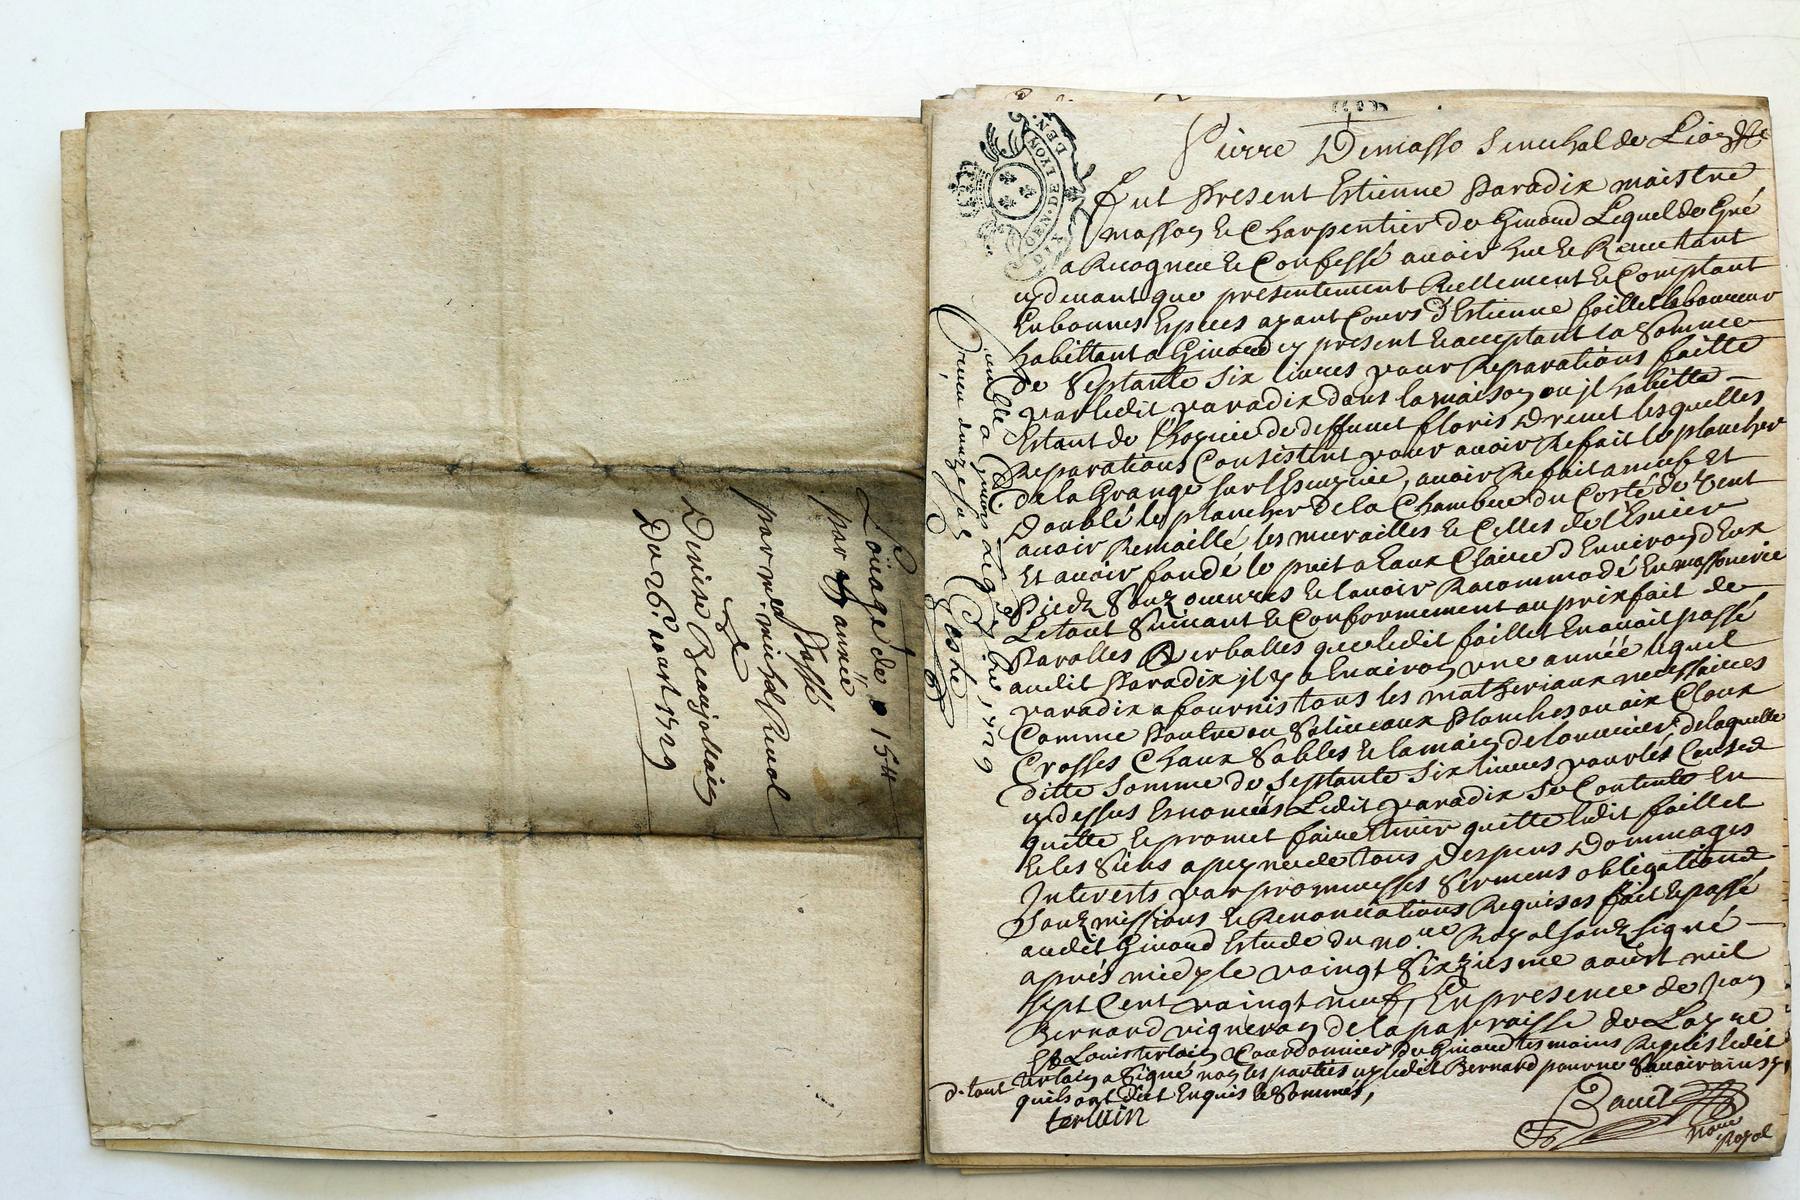 Louage de 154
par année
Passé
par mre michel Renol
De
Denise Beaujollain
Du 26e aoust 1729
GEN. DE LYON
DIX DEN.
Pierre Demasso Senechal de Lion
Fut Present Estienne Paradix maistre
masson & Charpentier de Givord Lequel de Gré
a Recogneu & Confessé auoir heu & Receu tant
cydeuant que presentement Reellement & Comptant
En bonnes Espèces ayant Cours d'Estienne faillet laboureur
habittant a Givord cy present & acceptant la Somme
de Septante Six liures pour Reparations faitte
par ledit paradix dans la maison ou jl habitte
Estant de l'hoyrie de deffunct floris Drevet lesquelles
Reparations Consistent pour auoir Refait le plancher
de la Grange sur l'Escuyrie, auoir Refait a neuf Et
Doublé le plancher de la Chambre du Costé de vent
auoir Remaillé les murailles & Celles de l'Esvier
Et auoir fondé le puit a Eaux Claire d'Enuiron deux
Piedz Souz oeuures & lauoir Racommodé En massonerie
Le tout Suiuant & Conformement au prixfait de
Parolles Verballes que ledit faillet En auoit passé
audit Paradix jl y a Enuiron vne année lequel
paradix a fournis tous les matheriaux necessaires
Comme Poutre ou Soliueaux Planches ou aix Cloux
Crosses Chaux Sables & la main de l'ouurier, de laquelle
ditte Somme de Septante Six liures pour les Causes
cy dessus Enoncées Ledit paradix Se Contente En
quitte & promet faire tenir quitte ledit faillet
& les Siens a peyne de tous Despens Dommages
Interests par promesses Sermens obligations
Souzmissions & Renonciations Requises fait & passé
audit Givord Estude du nore Royal souz signé
après midy le vaingt Sixziesme aoust mil
sept Cent vaingt neuf, En presence de Jean
Bernard vigneron de la parroisse de Layre
Et Louis terlain Courdonnier de Givord tesmoins Requis ledit
terlain a Signé non les parties ny ledit Bernard pour ne Sauoir ainsy
quils ont dict Enquis & Sommés,
de tout
terlain
Bauet
nore
Royal
Conllé a Givors le 9 7bre 1729
Receu douze sols